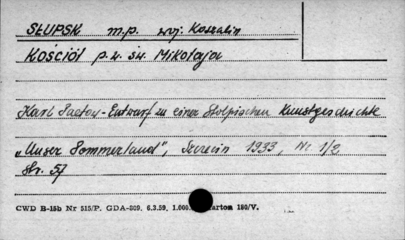 SŁUPSK m.p. woj. Koszalin
KOŚCIÓŁ p.w. św. Mikołaja
Karl Entwurf zu einer Stolpischen Kunstgeschichte
„Unser Pommerland", Szczecin 1933, Nr 1/2
Str. 57
CWD B-15b Nr 515/P. GDA-809. 6.3.59. 1.000. Karton 180/V.